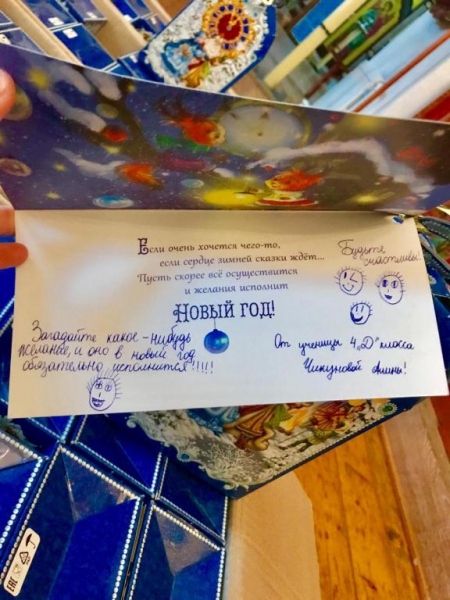 Если очень хочется чего-то,
если сердце зимней сказки ждёт...
Пусть скорее всё осуществится
и желания исполнит
Новый год!
Будьте
счастливы!
Загадайте какое-нибудь
желание, и оно в новый год
обязательно исполнится!!!!!
От ученицы 4„D" класса
Чикуновой Алины!
EAC